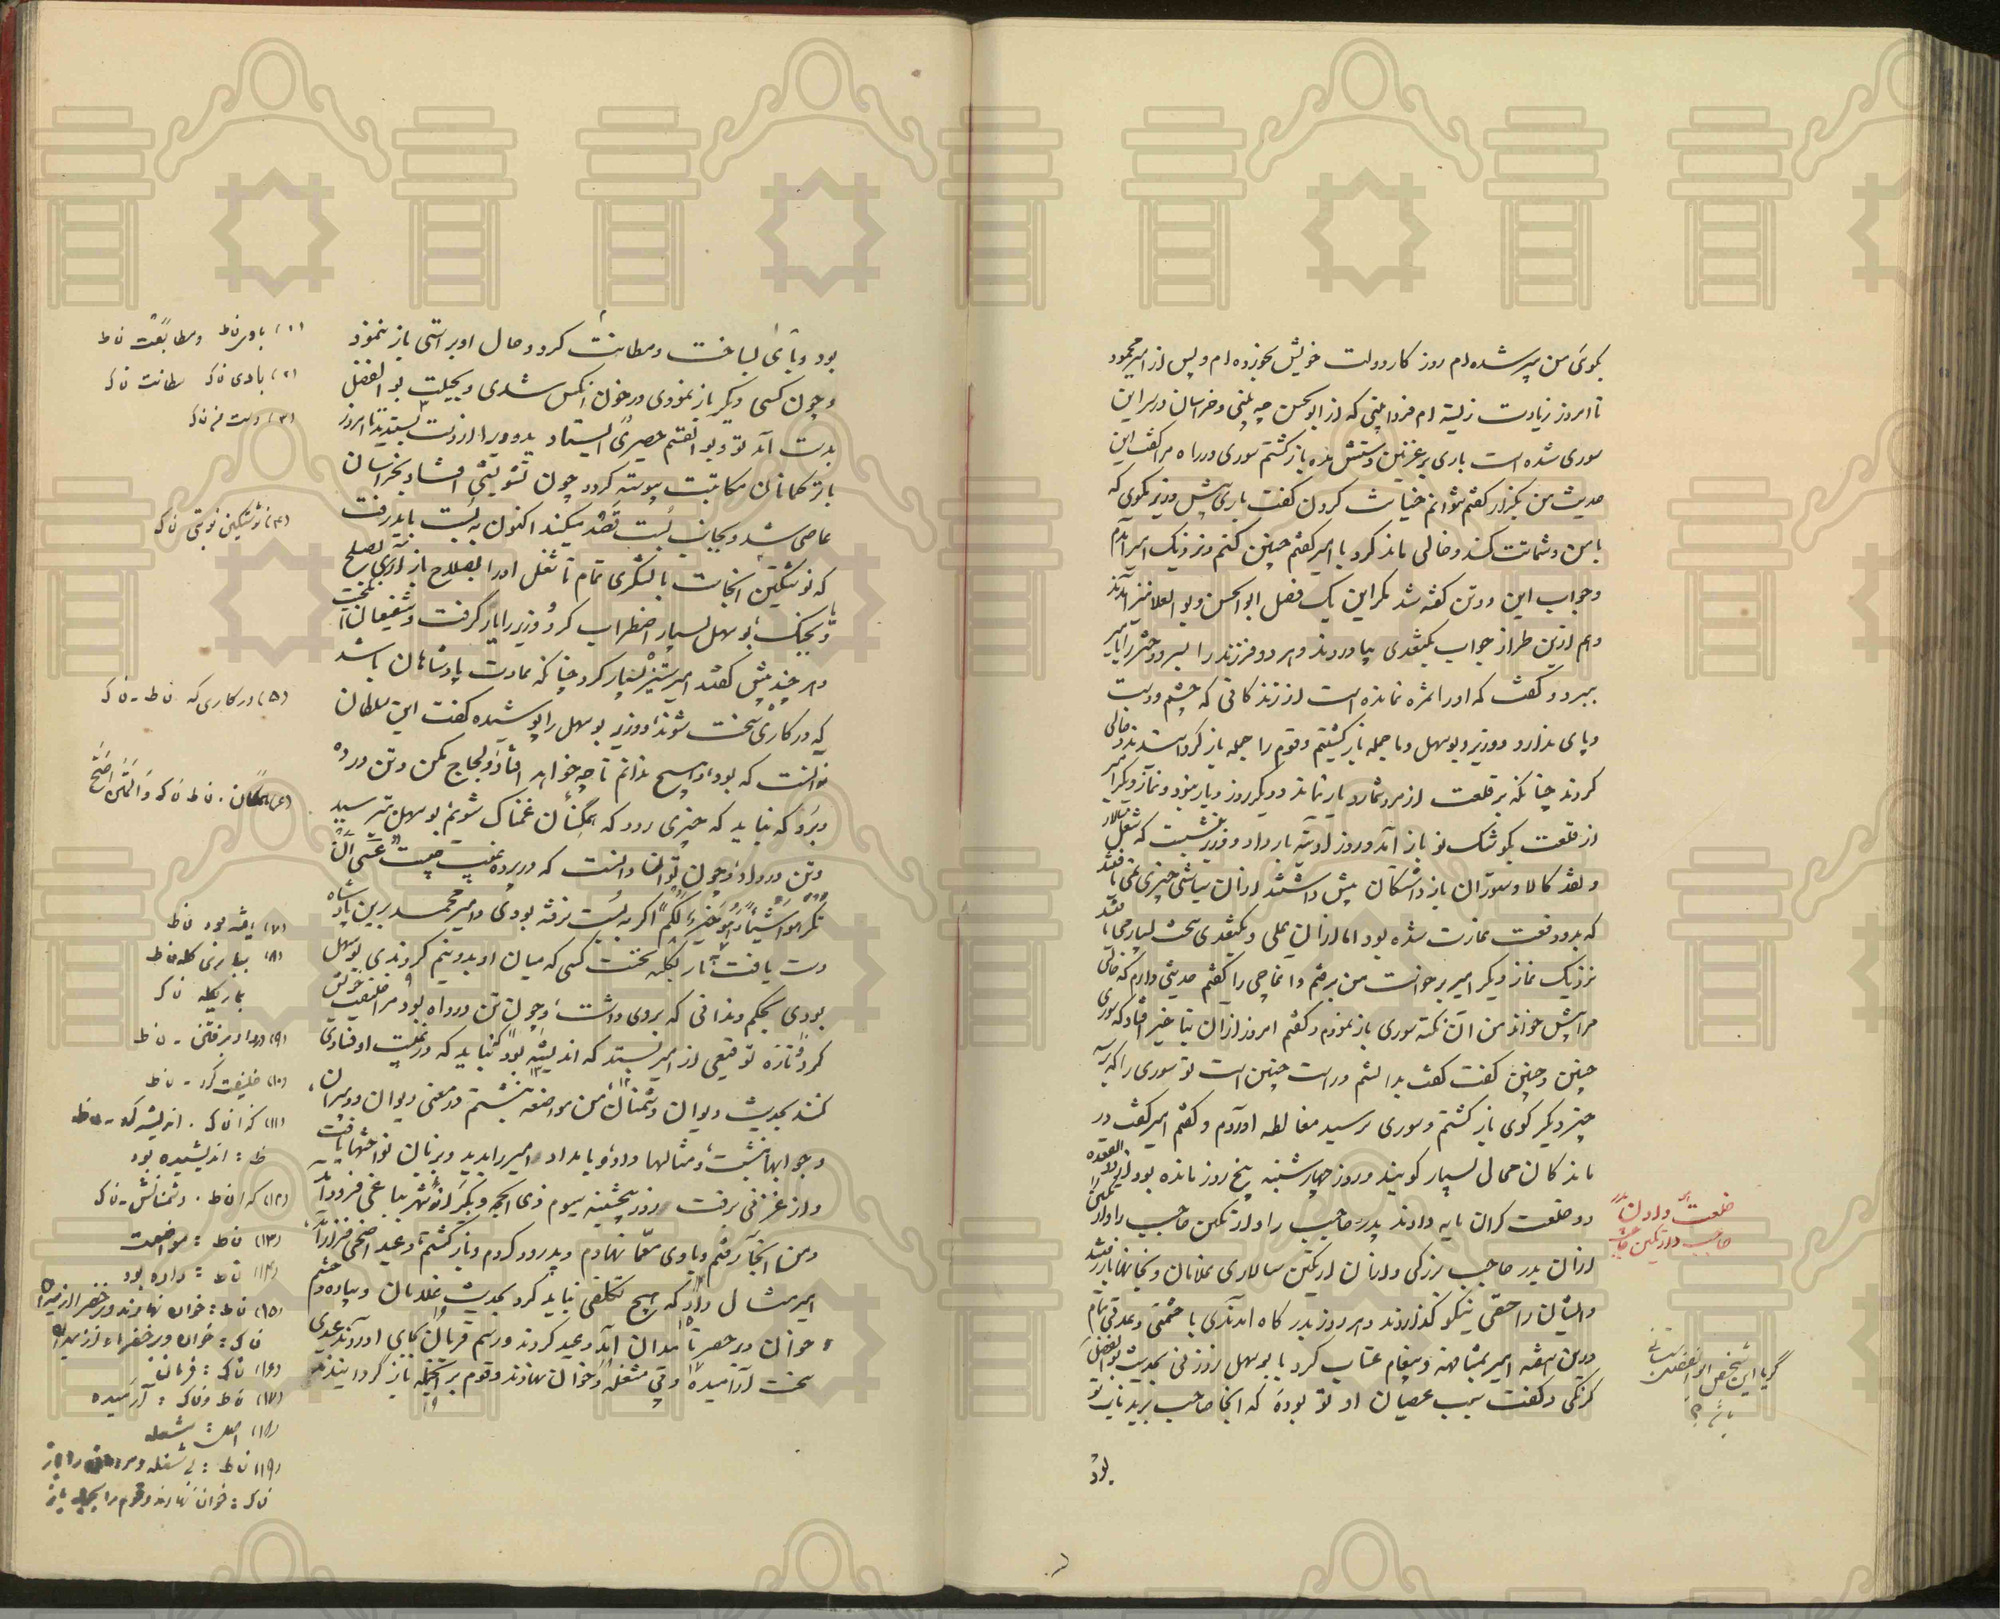 بگوی من پیر شده‌ام روز کار دولت خویش بخورده‌ام و پس از امیر محمود
تا امروز زیادت زیسته ام فردا بینی که از ابوالحسن چه بینی و خراسان در سر این
سوری شده است باری بر غزنین دستش مده بازگشتم سوری در راه مرا گفت این
حدیث من بگزار گفتم نتوانم خیانت کردن گفت باری پیش وزیر مگوی که
با من دشمانت کند و خالی باز کرد با امیر گفتم چنین کنم و نزدیک امیر آمدم
و جواب این دو تن گفته شد مگر این یک فصل ابوالحسن و بوالعلا نیز آمدند
و هم ازین طراز جواب بگتغدی بیاوردند و هر دو فرزند را پسر و دختر را بامیر
سپرد و گفت که او را مزه نمانده است از زندگانی که چشم و دست
و پای ندارد و وزیر و بوسهل و ما جمله بازگشتیم و قوم را جمله بازگردانیدند و خالی
کردند چنانکه بر قلعت از مردم شمار دیار نماند و دیگر روز دیار نبود و نماز دیگر امیر
از قلعت بکوشک نو باز آمد و روز آدینه بار داد و وزیر بنشست که شغل سالار
و نقد کالا و ستوران باز داشتگان پیش داشتند از آن سباشی چیزی نمی‌یافتند
که بدو دفعت غارت شده بود اما از آن علی و بگتغدی سخت بسیار می‌یافتند
نزدیک نماز دیگر امیر برخاست من برفتم و آغاچی را گفتم حدیثی دارم که خالی
مرا پیش خواند من آن نکته سوری باز نمودم و گفتم امروز از آن بتأخیر افتاد که سوری
چنین و چنین گفت گفت بدانستم و راست چنین است تو سوری را اگر پرسد
چیز دیگر گوی بازگشتم و سوری پرسید مغالطه آوردم و گفتم امیر گفت در
ماندگان محال بسیار گویند و روز چهارشنبه پنج روز مانده بود از ذی القعده
دو خلعت گران مایه دادند بدر حاجب را و ارتگین حاجب را
از آن بدر حاجب بزرگی و از آن ارتگین سالاری غلامان و بخانها باز رفتند
و ایشان را حقی نیکو گذاردند و هر روز بدرگاه آمدندی با حشمتی و عدتی تمام
و درین هفته امیر بمشافهه و پیغام عتاب کرد با بوسهل زوزنی بحدیث بوالفضل
کرنکی و گفت سبب عصیان او تو بوده‌ که آنجا صاحب برید نایب تو
بود
خلعت دادن بدر
حاجب و ارتگین حاجب
گویا این شخص ابوالفضل سیستانی
باشد ؟
بود و با وی بساخت و مطابقت کرد و حال او براستی باز ننمود
و چون کسی دیگر باز نمودی در خون آنکس شدی و بحیلت بوالفضل
بدست آمد تو و بوالقاسم حصیری ایستادید و ویرا از دست بستدید تا امروز
با ترکمانان مکاتبت پیوسته کرد و چون تشویشی افتاد بخراسان
عاصی شد و بجانب بُست قصد میکند اکنون به بُست باید رفت
که نوشتگین آنجاست با لشکری تمام تا شغل او را بصلاح باز آری بصلح
و بجنگ بوسهل بسیار اضطراب کرد و وزیر را یار گرفت و شفیعان انگیخت
و هر چند بیش گفتند امیر ستیزه بیشتر کرد چنانکه عادت پادشاهان باشد
که در کاری سخت شوند و وزیر بوسهل را پوشیده گفت این سلطان
نه آنست که بود و هیچ ندانم تا چه خواهد افتاد و لجاج مکن و تن در ده
و برو که نباید که چیزی رود که همگنان غمناک شویم بوسهل بترسید
و تن در داد و چون توان دانست که در پرده غیب چیست عَسی أن
تکرهوا شیئاً و هو خیر لکم اگر به بُست نرفته بودی و امیر محمد برین پادشاه
دست یافت بباریکله نخست کسی که میان او بدو نیم کردندی بوسهل
بودی بحکم دندانی که بر وی داشت و چون تن در داد بود مرا خلیفت خویش
کرد و تازه توقیعی از امیر بستد که اندیشه بود که نباید که در غیبت او فسادی
کنند بحدیث دیوان دشمنان من مواضعه نبشتم در معنی دیوان و دبیران
و جوابها نبشت و مثالها داد و بامداد امیر را بدید و بزبان نواختها یافت
و از غزنی برفت روز پنجشنبه سیوم ذی الحجه و بکران شهر بباغی فرود آمد
و من آنجا رفتم و با وی معما نهادم و پدرود کردم و بازگشتم و عید اضحی فراز آمد
امیر مثال داد که هیچ تکلفی نباید کرد بحدیث غلامان و پیاده و حشم
و خوان و بر خضرا بمیدان آمد و عید کردند و رسم قربان بجای آوردند عیدی
سخت آرامیده و بی مشغله و خوان نهادند و قوم را بجمله باز گردانیدند
(۱) باوی ن‌ط و مطابقت ن‌ط
(۲) بادی ن‌ک مطانت ن‌ک
(۳) دست من ن‌ک
(۴) نوشتگین نوبتی ن‌ک
(۵) در کاری که ن‌ط - ن‌ک
(۷) رفته بود ن‌ط
(۸) بیاری کله ن‌ط
بماریکله ن‌ک
(۹) در داد برفتن - ن‌ط
(۱۰) خلیفت کرد - ن‌ط
(۱۱) که ان‌ک . اندیشه که - ن‌ط
ظ : اندیشیده بود
(۱۲) که ان‌ط . دشمنانش - ن‌ک
(۱۳) ن‌ط : مواضعت
(۱۴) ن‌ط : داده بود
(۱۵) ن‌ط : خوان نهادند و بر خضرا
ن‌ک : خوان و بر خضراء
(۱۶) ن‌ک : فرمان
(۱۷) ن‌ط و ن‌ک : آرمیده
(۱۸) اصل : شعله
(۱۹) ن‌ط : بی مشغله و مردمان را باز
ن‌ک : خوان نهادند و قوم را بجمله باز